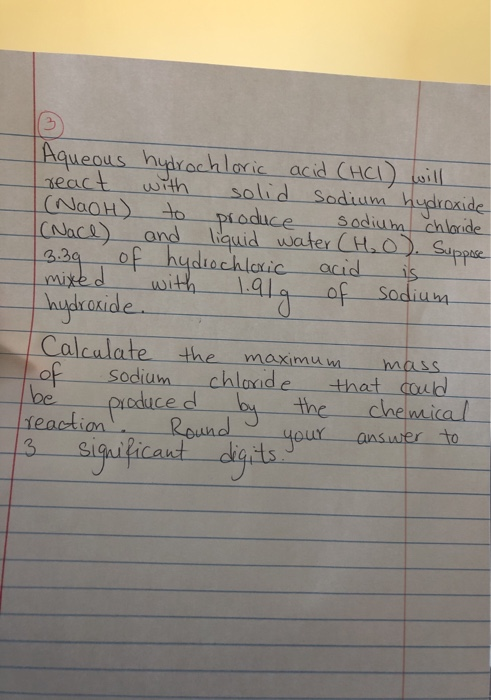 3
Aqueous hydrochloric acid (HCl) will
react with solid sodium hydroxide
(NaOH) to produce sodium chloride
(NaCl) and liquid water (H₂O). Suppose
3.3g of hydrochloric acid is
mixed with 1.91g of sodium
hydroxide.
Calculate the maximum mass
of sodium chloride that could
be produced by the chemical
reaction. Round your answer to
3 significant digits.